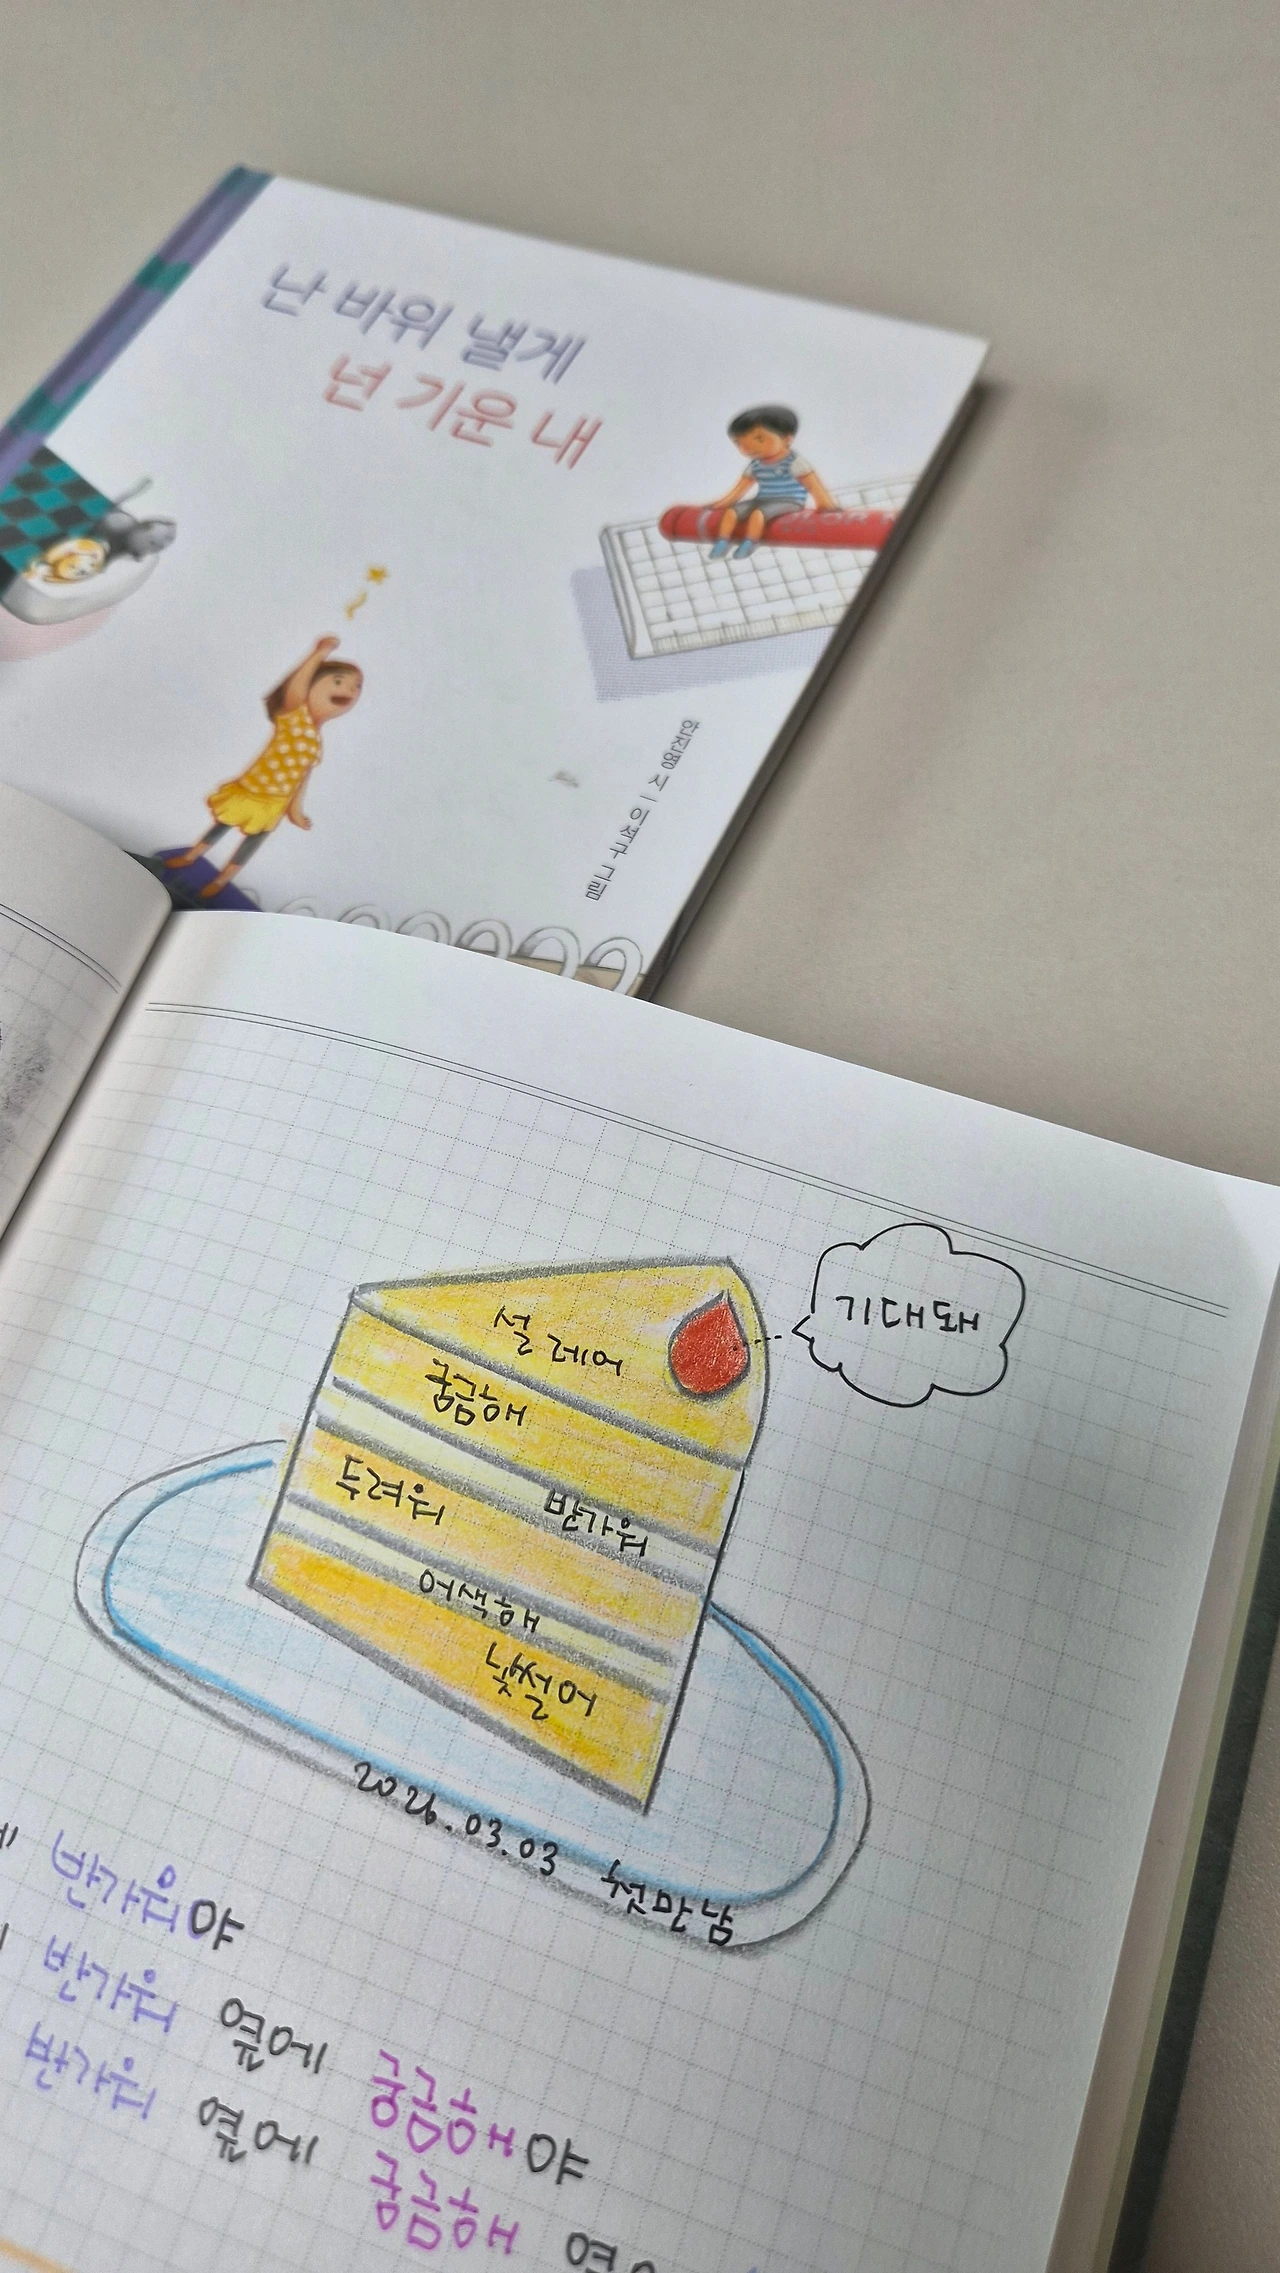 난 바위 낼게
넌 기운 내
안진영 시 | 이석구 그림
기대돼
설레어
궁금해
반가워
두려워
어색해
낯설어
2026.03.03 첫만남
반가워야
반가워 옆에 궁금해야
반가워 옆에 궁금해